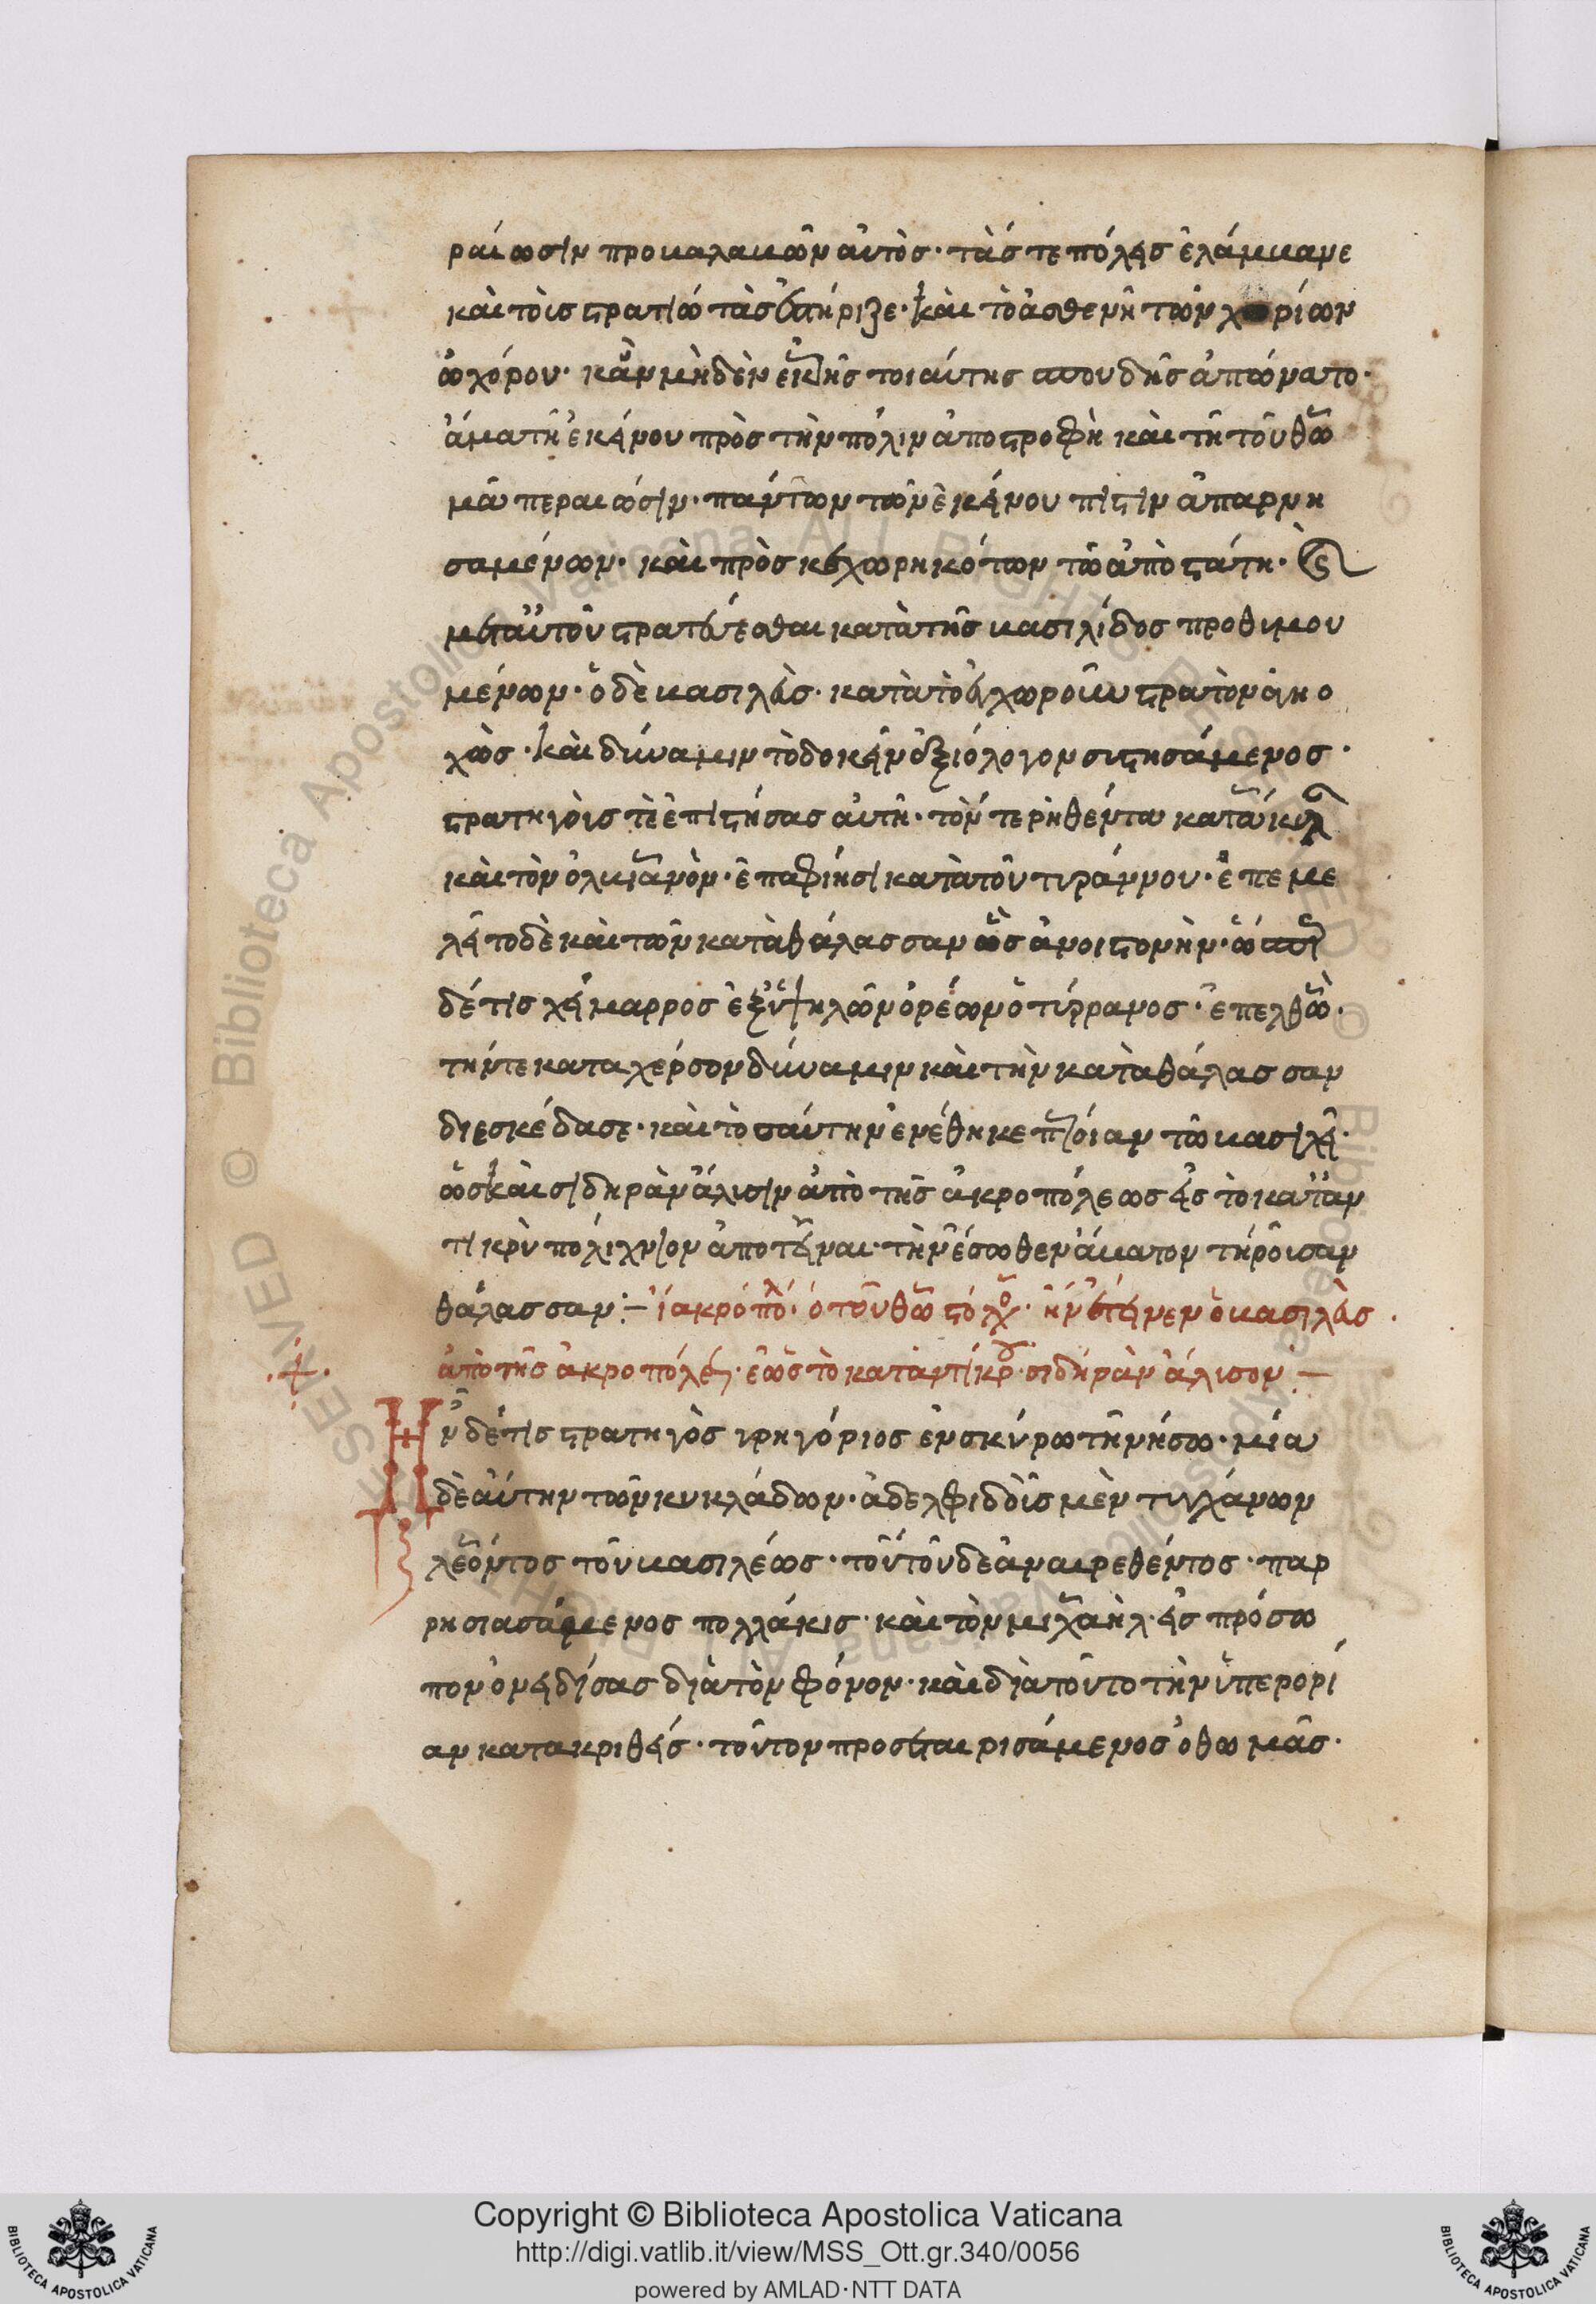 ραίωσιν προκαλαβὼν αὐτὸς· τάς τε πόλεις ἐλάμβανε
καὶ τοῖς στρατιώταις ἐστήριζε· καὶ τὸ ἀσθενῆ τῶν χωρίων
ὠχύρου· κἂν μηδὲν ἐκ τῆς τοιαύτης σπουδῆς ἀπώνατο·
ἅμα τῆ ἐκείνου πρὸς τὴν πόλιν ἀποστροφῆ καὶ τῆ τοῦ θω
μᾶ περαιώσιν· πάντων τῶν ἐκείνου πίστιν ἀπαρνη
σαμένων· καὶ προσκεχωρηκότων τῶ ἀποστάτη· καὶ
μετ' αὐτοῦ στρατεύεσθαι κατὰ τῆς βασιλίδος προθιμου
μένων· ὁ δὲ βασιλεὺς· κατὰ τὸ ἐγχωροῦν στρατὸν ἀγηο
χὼς· καὶ δύναμιν τὸ δοκεῖν ἀξιόλογον συστησάμενος·
στρατηγοῖς τὲ ἐπιστήσας αὐτῆ· τόν τε ῥηθέντα κατάκυλαν
καὶ τὸν ὀλβιανὸν· ἐπαφίησι κατὰ τοῦ τυράννου· ἐπεμε
λεῖτο δὲ καὶ τῶν κατὰ θάλασσαν ὡς ἀνυστὸν ἦν· ὥσπερ
δέ τις χείμαρρος ἐξ ὑψηλῶν ὀρέων ὁ τύρρανος· ἐπελθὼν·
τήν τε κατα χέρσον δύναμιν καὶ τὴν κατὰ θάλασσαν
διεσκέδασε· καὶ τοσαύτην ἐνέθηκε πτοίαν τῶ βασιλεῖ·
ὡς καὶ σιδηρὰν ἄλυσιν ἀπὸ τῆς ἀκροπόλεως εἰς τὸ κατ' ἀν
τικρὺ πολίχνιον ἀποτεῖναι· τὴν ἔσωθεν ἄβατον τηροῦσαν
θάλασσαν:— ὁ τοῦ θωμᾶ στόλος· ἣν ἔτεινεν ὁ βασιλεὺς·
ἀπὸ τῆς ἀκροπόλεως· ἕως τὸ καταντικρὺ· σιδηρὰν ἄλισον:—
Ἦν δέ τις στρατηγὸς γρηγόριος ἐν σκύρω τῆ νήσω· μία
δὲ αὕτη τῶν κυκλάδων· ἀδελφιδοῦς μὲν τυγχάνων
λέοντος τοῦ βασιλέως· τούτου δὲ ἀναιρεθέντος· παρ
ρησιασάμενος πολλάκις· καὶ τὸν μιχαὴλ· εἰς πρόσω
πον ὀνειδίσας διὰ τὸν φόνον· καὶ διὰ τοῦτο τὴν ὑπερορί
αν κατακριθείς· τοῦτον προσεταιρισάμενος ὁ θωμᾶς·
Copyright © Biblioteca Apostolica Vaticana
http://digi.vatlib.it/view/MSS_Ott.gr.340/0056
powered by AMLAD·NTT DATA